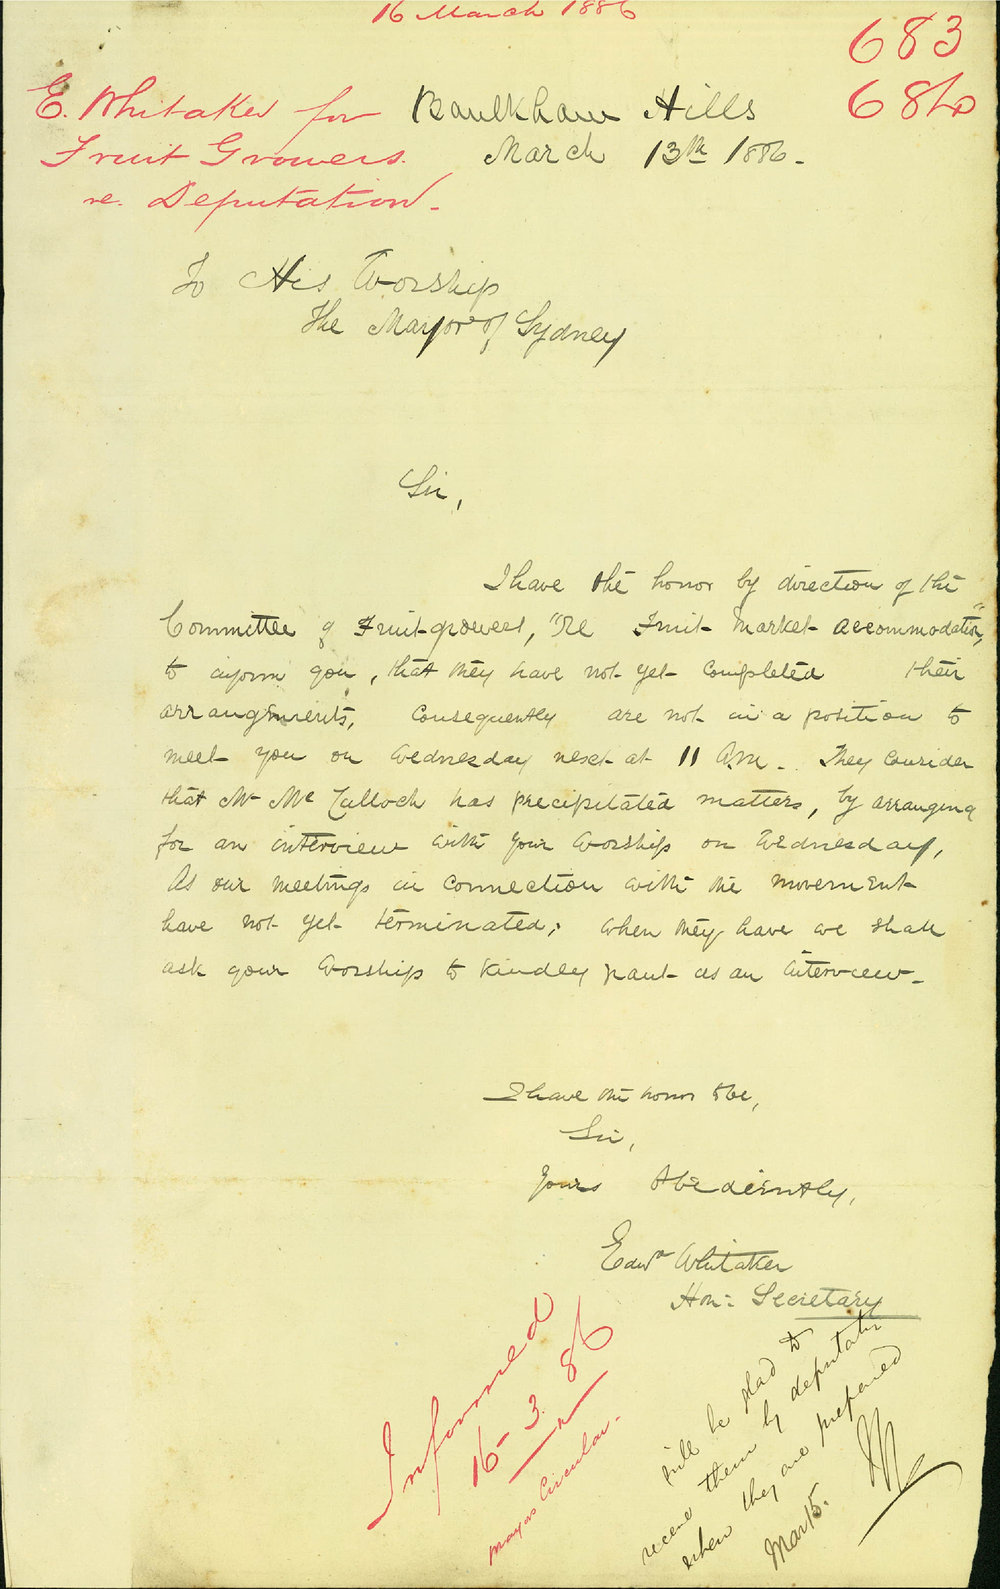 16 March 1886
683
684
E. Whitaker for
Fruit Growers.
re. Deputation.
Baulkham Hills
March 13th 1886.
To His Worship
The Mayor of Sydney
Sir,
I have the honor by direction of the
Committee of Fruitgrowers, "Re Fruit Market Accommodation,"
to inform you, that they have not yet completed their
arrangements, Consequently are not in a position to
meet you on Wednesday next at 11 A.M. They Consider
that Mr McCulloch has precipitated matters, by arranging
for an interview with your Worship on Wednesday,
As our meetings in connection with the movement
have not yet terminated; when they have we shall
ask your Worship to kindly grant us an interview.
I have the honor to be,
Sir,
Yours Obediently,
Edwd Whitaker
Hon: Secretary
Informed
16-3.86
Mayors Circular.
will be glad to
receive them by deputatn
when they are prepared
Mar 15.